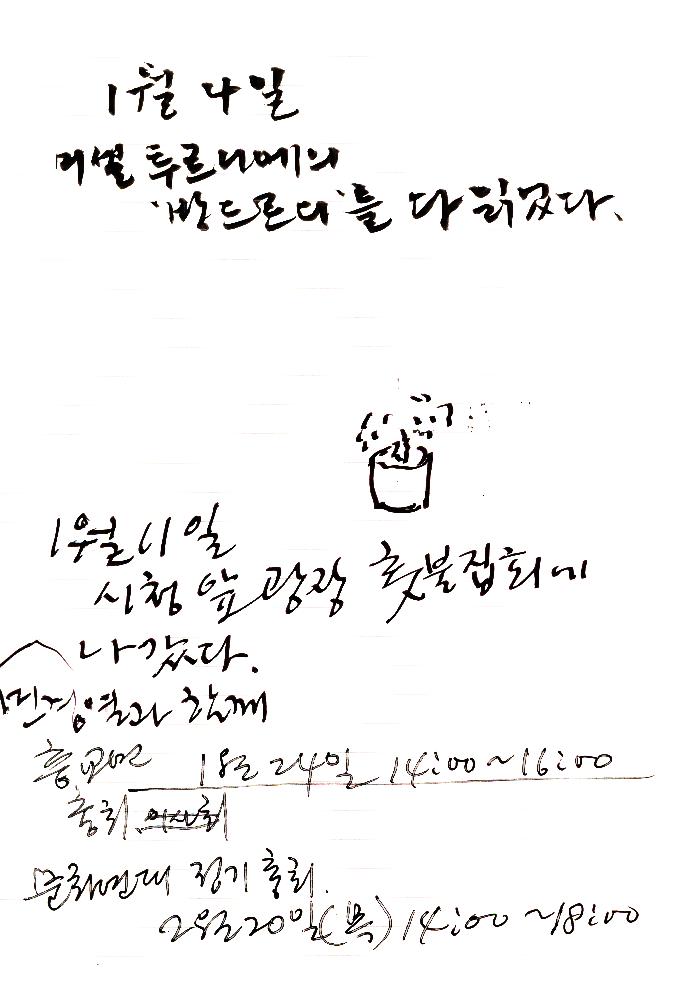 1월 4일
미셸 투르니에의
'방드르디'를 다 읽었다.
1월 11일
시청 앞 광장 촛불집회에
나갔다.
민경열과 함께
1월 24일 14:00~16:00
총회 이사회
문화연대 정기총회.
2월 20일(목) 14:00~18:00